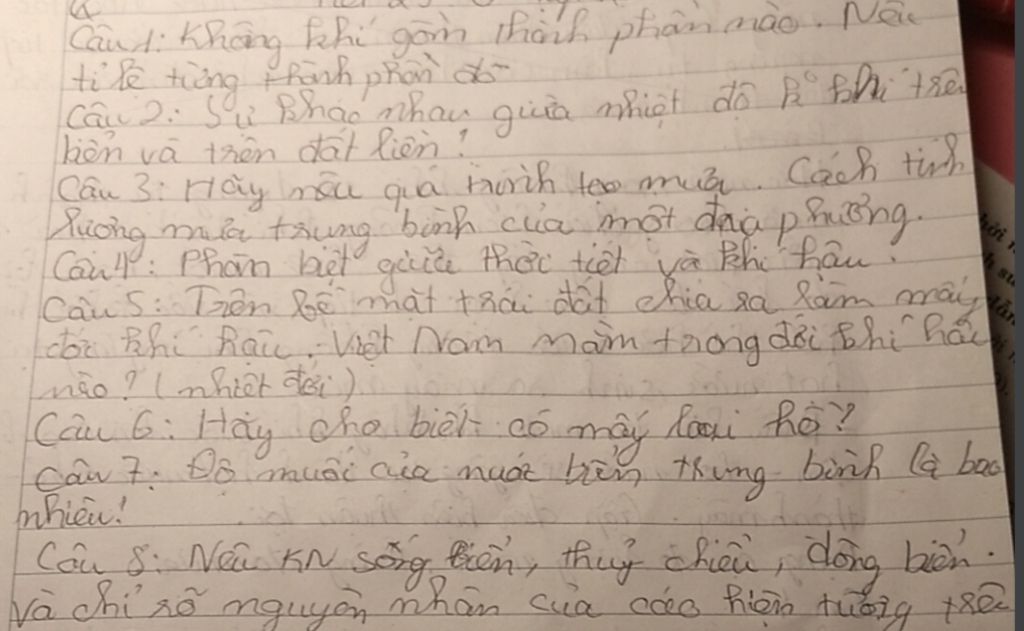 Câu 1: Không khí gồm thành phần nào. Nêu
tỉ lệ từng thành phần đó
Câu 2: Sự khác nhau giữa nhiệt độ k° khí trên
biển và trên đất liền?
Câu 3: Hãy nêu quá trình tạo mưa. Cách tính
lượng mưa trung bình của một địa phương.
Câu 4: Phân biệt giữa thời tiết và khí hậu.
Câu 5: Trên bề mặt trái đất chia ra làm mấy
đới khí hậu. Việt Nam nằm trong đới khí hậu
nào? (nhiệt đới)
Câu 6: Hãy cho biết có mấy loại hồ?
Câu 7: Độ muối của nước biển trung bình là bao
nhiêu?
Câu 8: Nêu KN sóng biển, thuỷ chiều, dòng biển.
Và chỉ rõ nguyên nhân của các hiện tượng trên